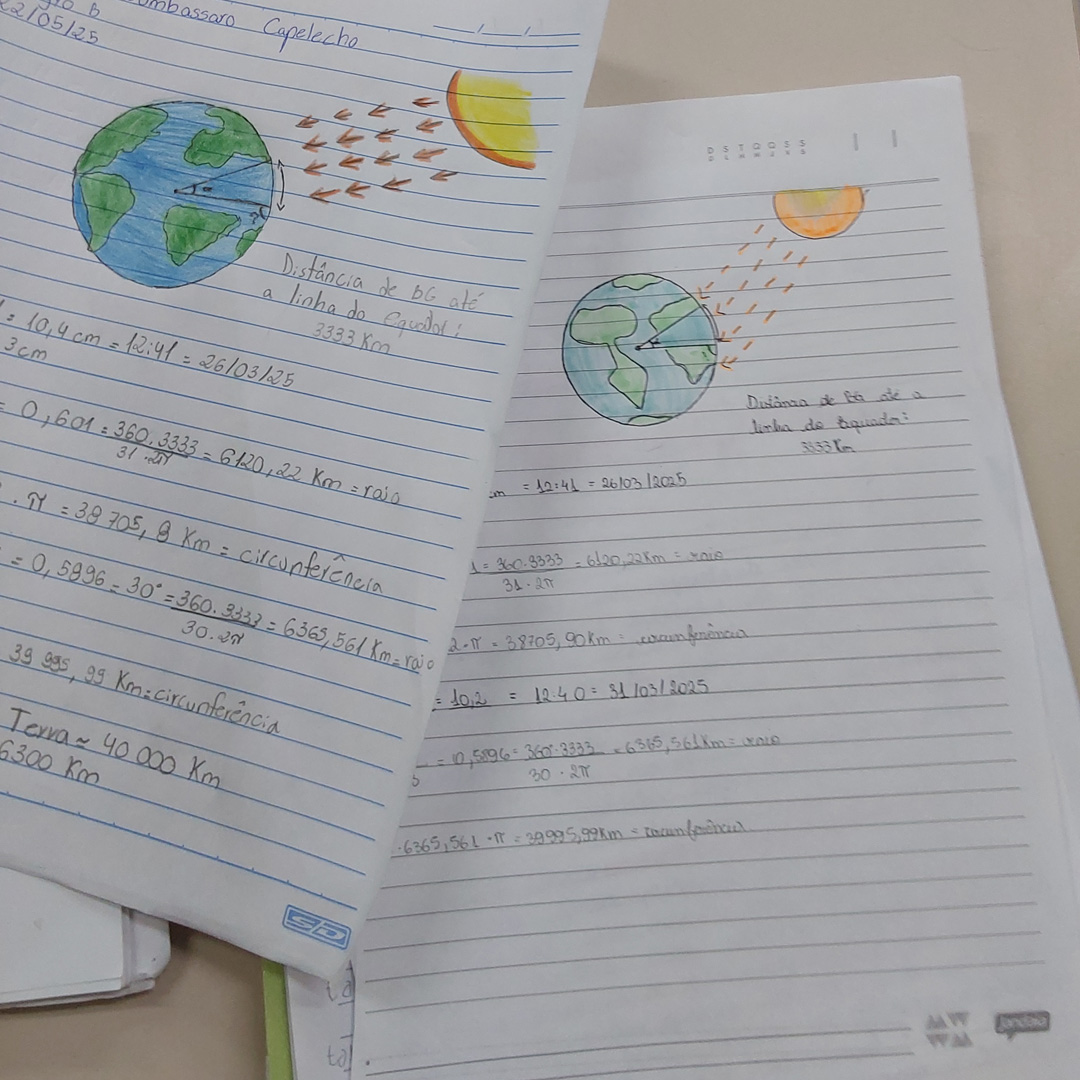 B
umbassaro Capelecho
22/05/25
Distância de BG até
a linha do Equador:
3333 Km
= 10,4 cm = 12:41 = 26/03/25
3cm
= 0,601 = 360.3333 = 6120,22 Km = raio
31.2π
.π = 38705,9 Km = circunferência
= 0,5896 = 30° = 360.3333 = 6365,561 Km = raio
30.2π
39 995,99 Km = circunferência
Terra ≈ 40 000 Km
6300 Km
SD
D S T Q Q S S
D L M M J V S
Distância de BG até a
linha do Equador:
3333 Km
cm = 12:41 = 26/03/2025
1 = 360.3333 = 6120,22Km = raio
31.2π
2.π = 38705,90Km = circunferência
= 10,2 = 12:40 = 31/03/2025
= 0,5896 = 360.3333 = 6365,561Km = raio
30.2π
.6365,561.π = 39995,99Km = circunferência
jandaia